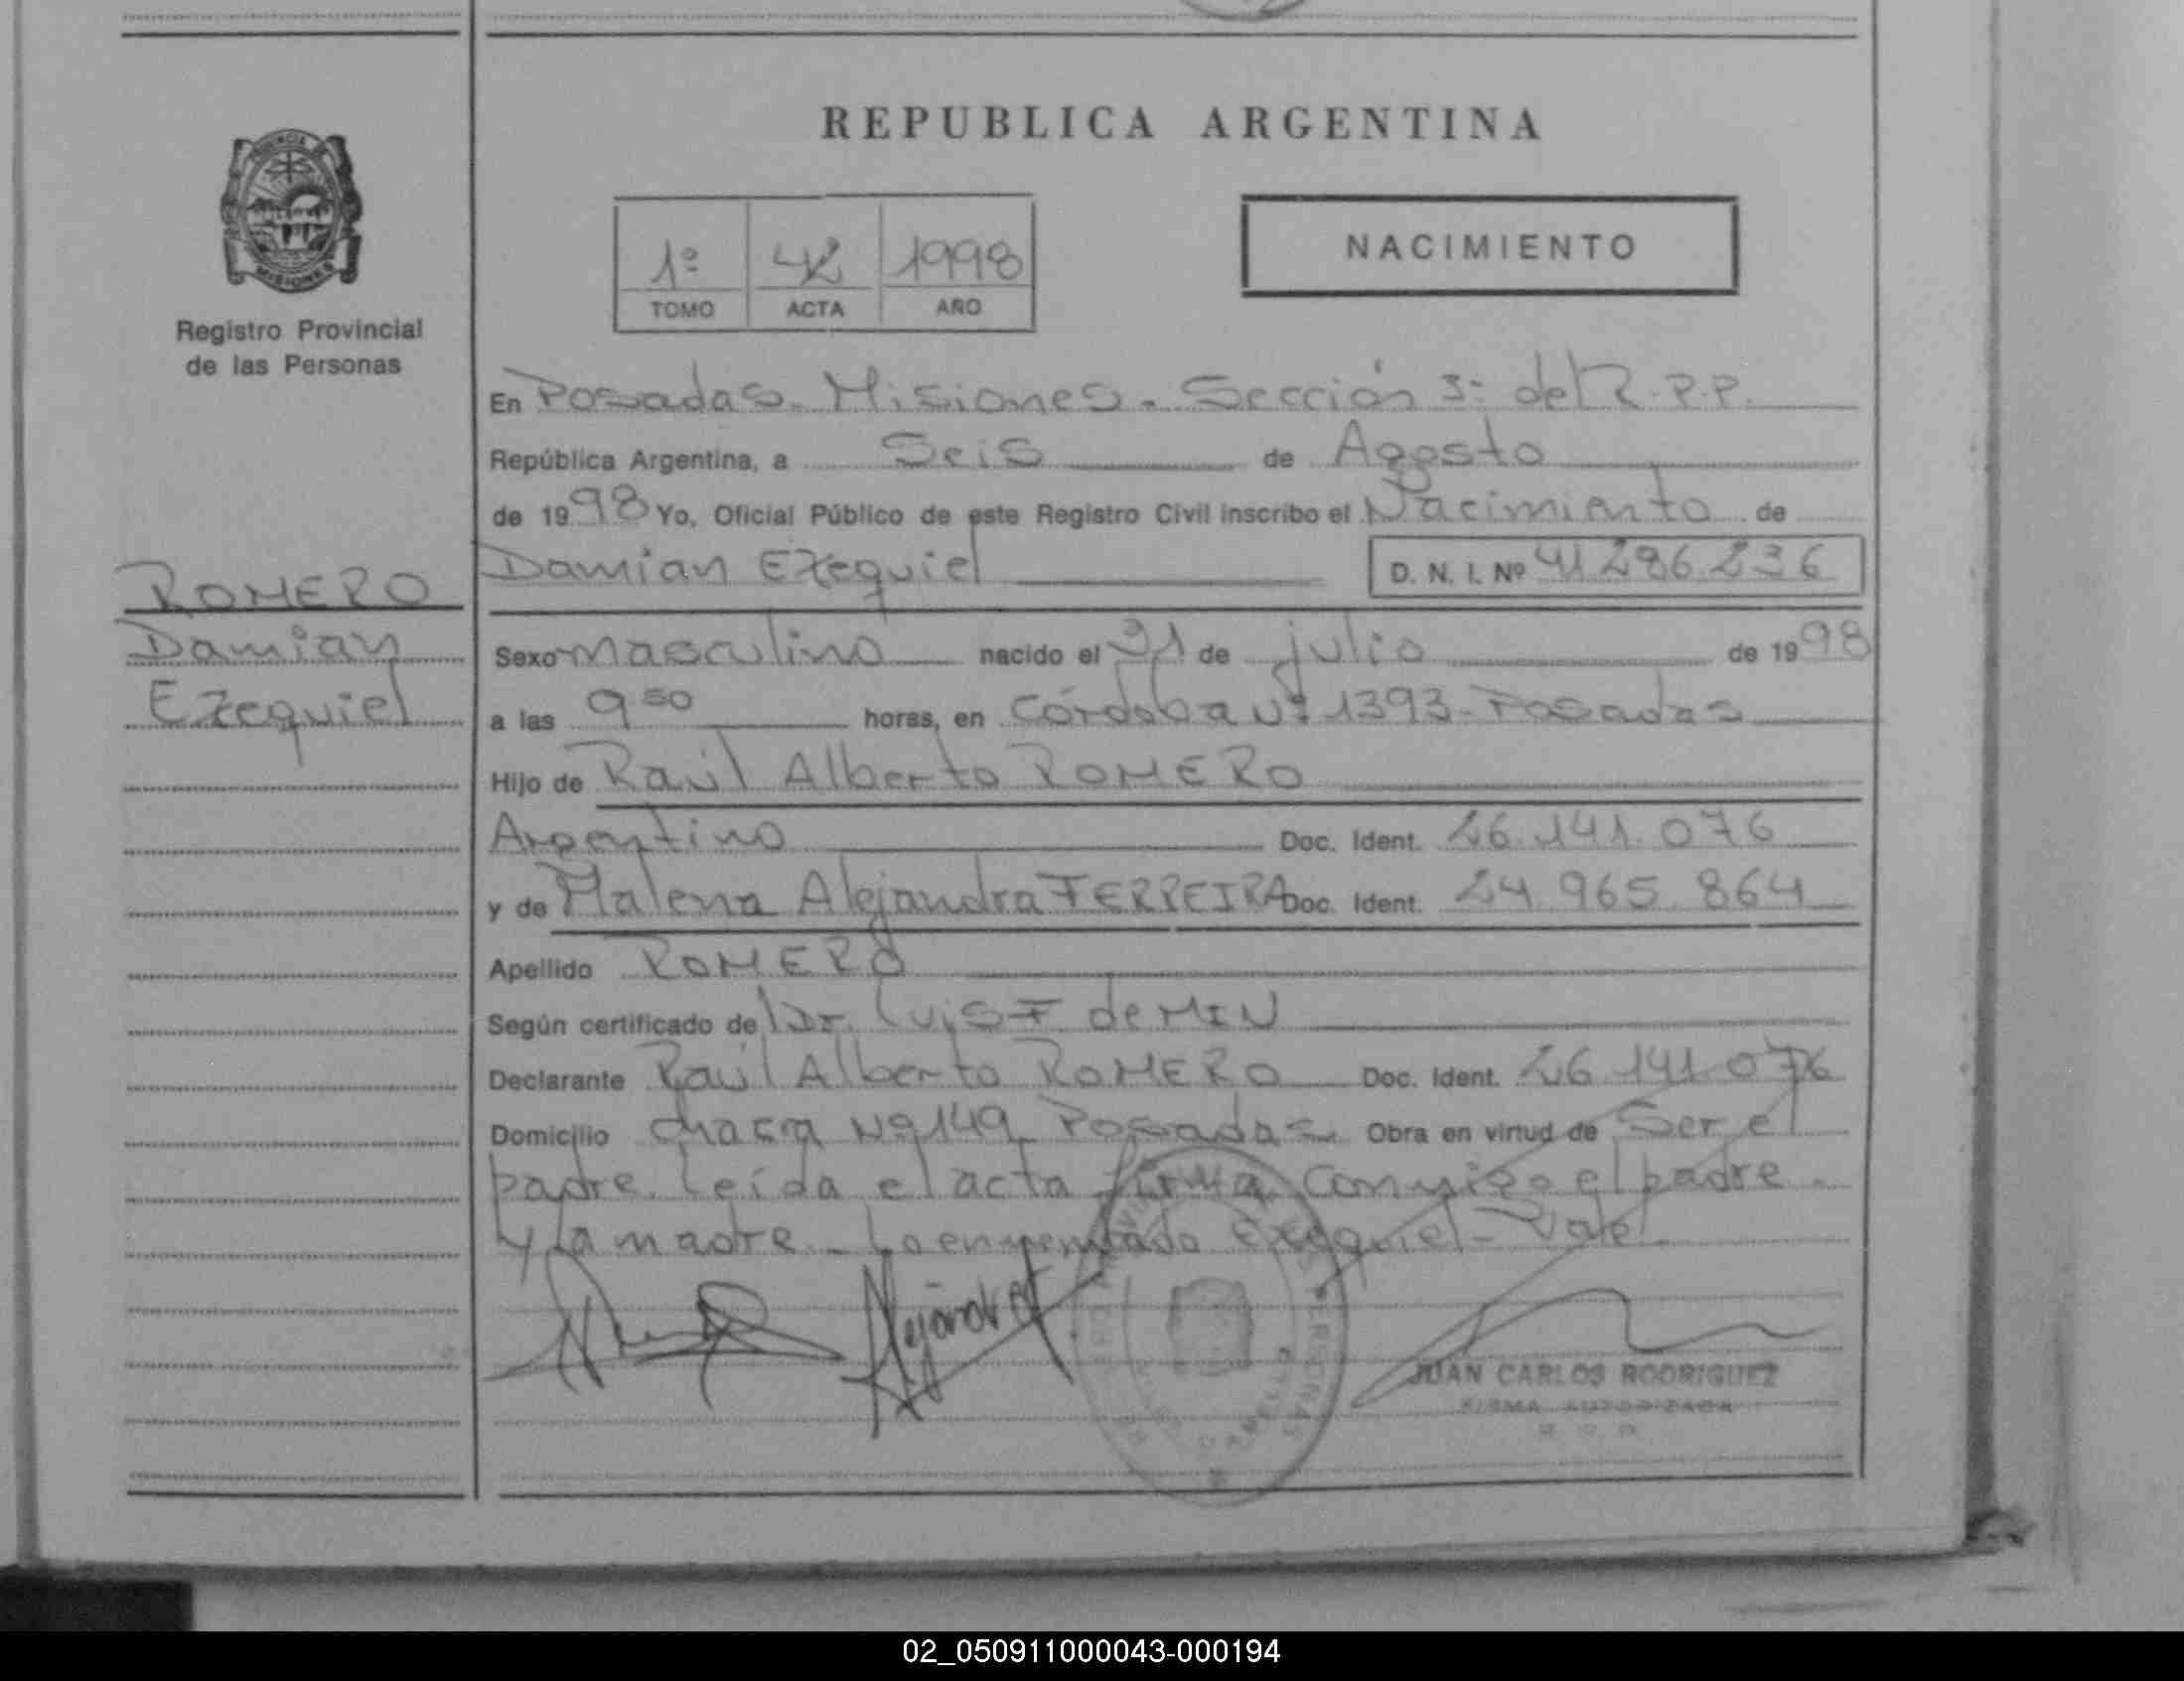 REPUBLICA ARGENTINA
NACIMIENTO
1º 42 1998
TOMO ACTA AÑO
PROVINCIA
MISIONES
Registro Provincial
de las Personas
En Posadas. Misiones. Sección 3ª del R.P.P.
República Argentina, a Seis de Agosto
de 1998 Yo, Oficial Público de este Registro Civil inscribo el Nacimiento de
Damian Ezequiel D. N. I. Nº 41 286.236
ROMERO
Damian
Ezequiel
Sexo masculino nacido el 31 de julio de 1998
a las 9 50 horas, en Córdoba Nº 1393 - Posadas
Hijo de Raúl Alberto ROMERO
Argentino Doc. Ident. 26.141.076
y de Malena Alejandra FERREIRA Doc. Ident. 24.965.864
Apellido ROMERO
Según certificado de Dr. Luis F. de MIN
Declarante Raúl Alberto ROMERO Doc. Ident. 26.141.076
Domicilio chacra Nº 149 Posadas Obra en virtud de Ser el
padre. Leída el acta firma conmigo el padre.
y la madre. - Lo enmendado Ezequiel - Vale.
Alejandra
JUAN CARLOS RODRIGUEZ
FIRMA AUTORIZADA
02_050911000043-000194